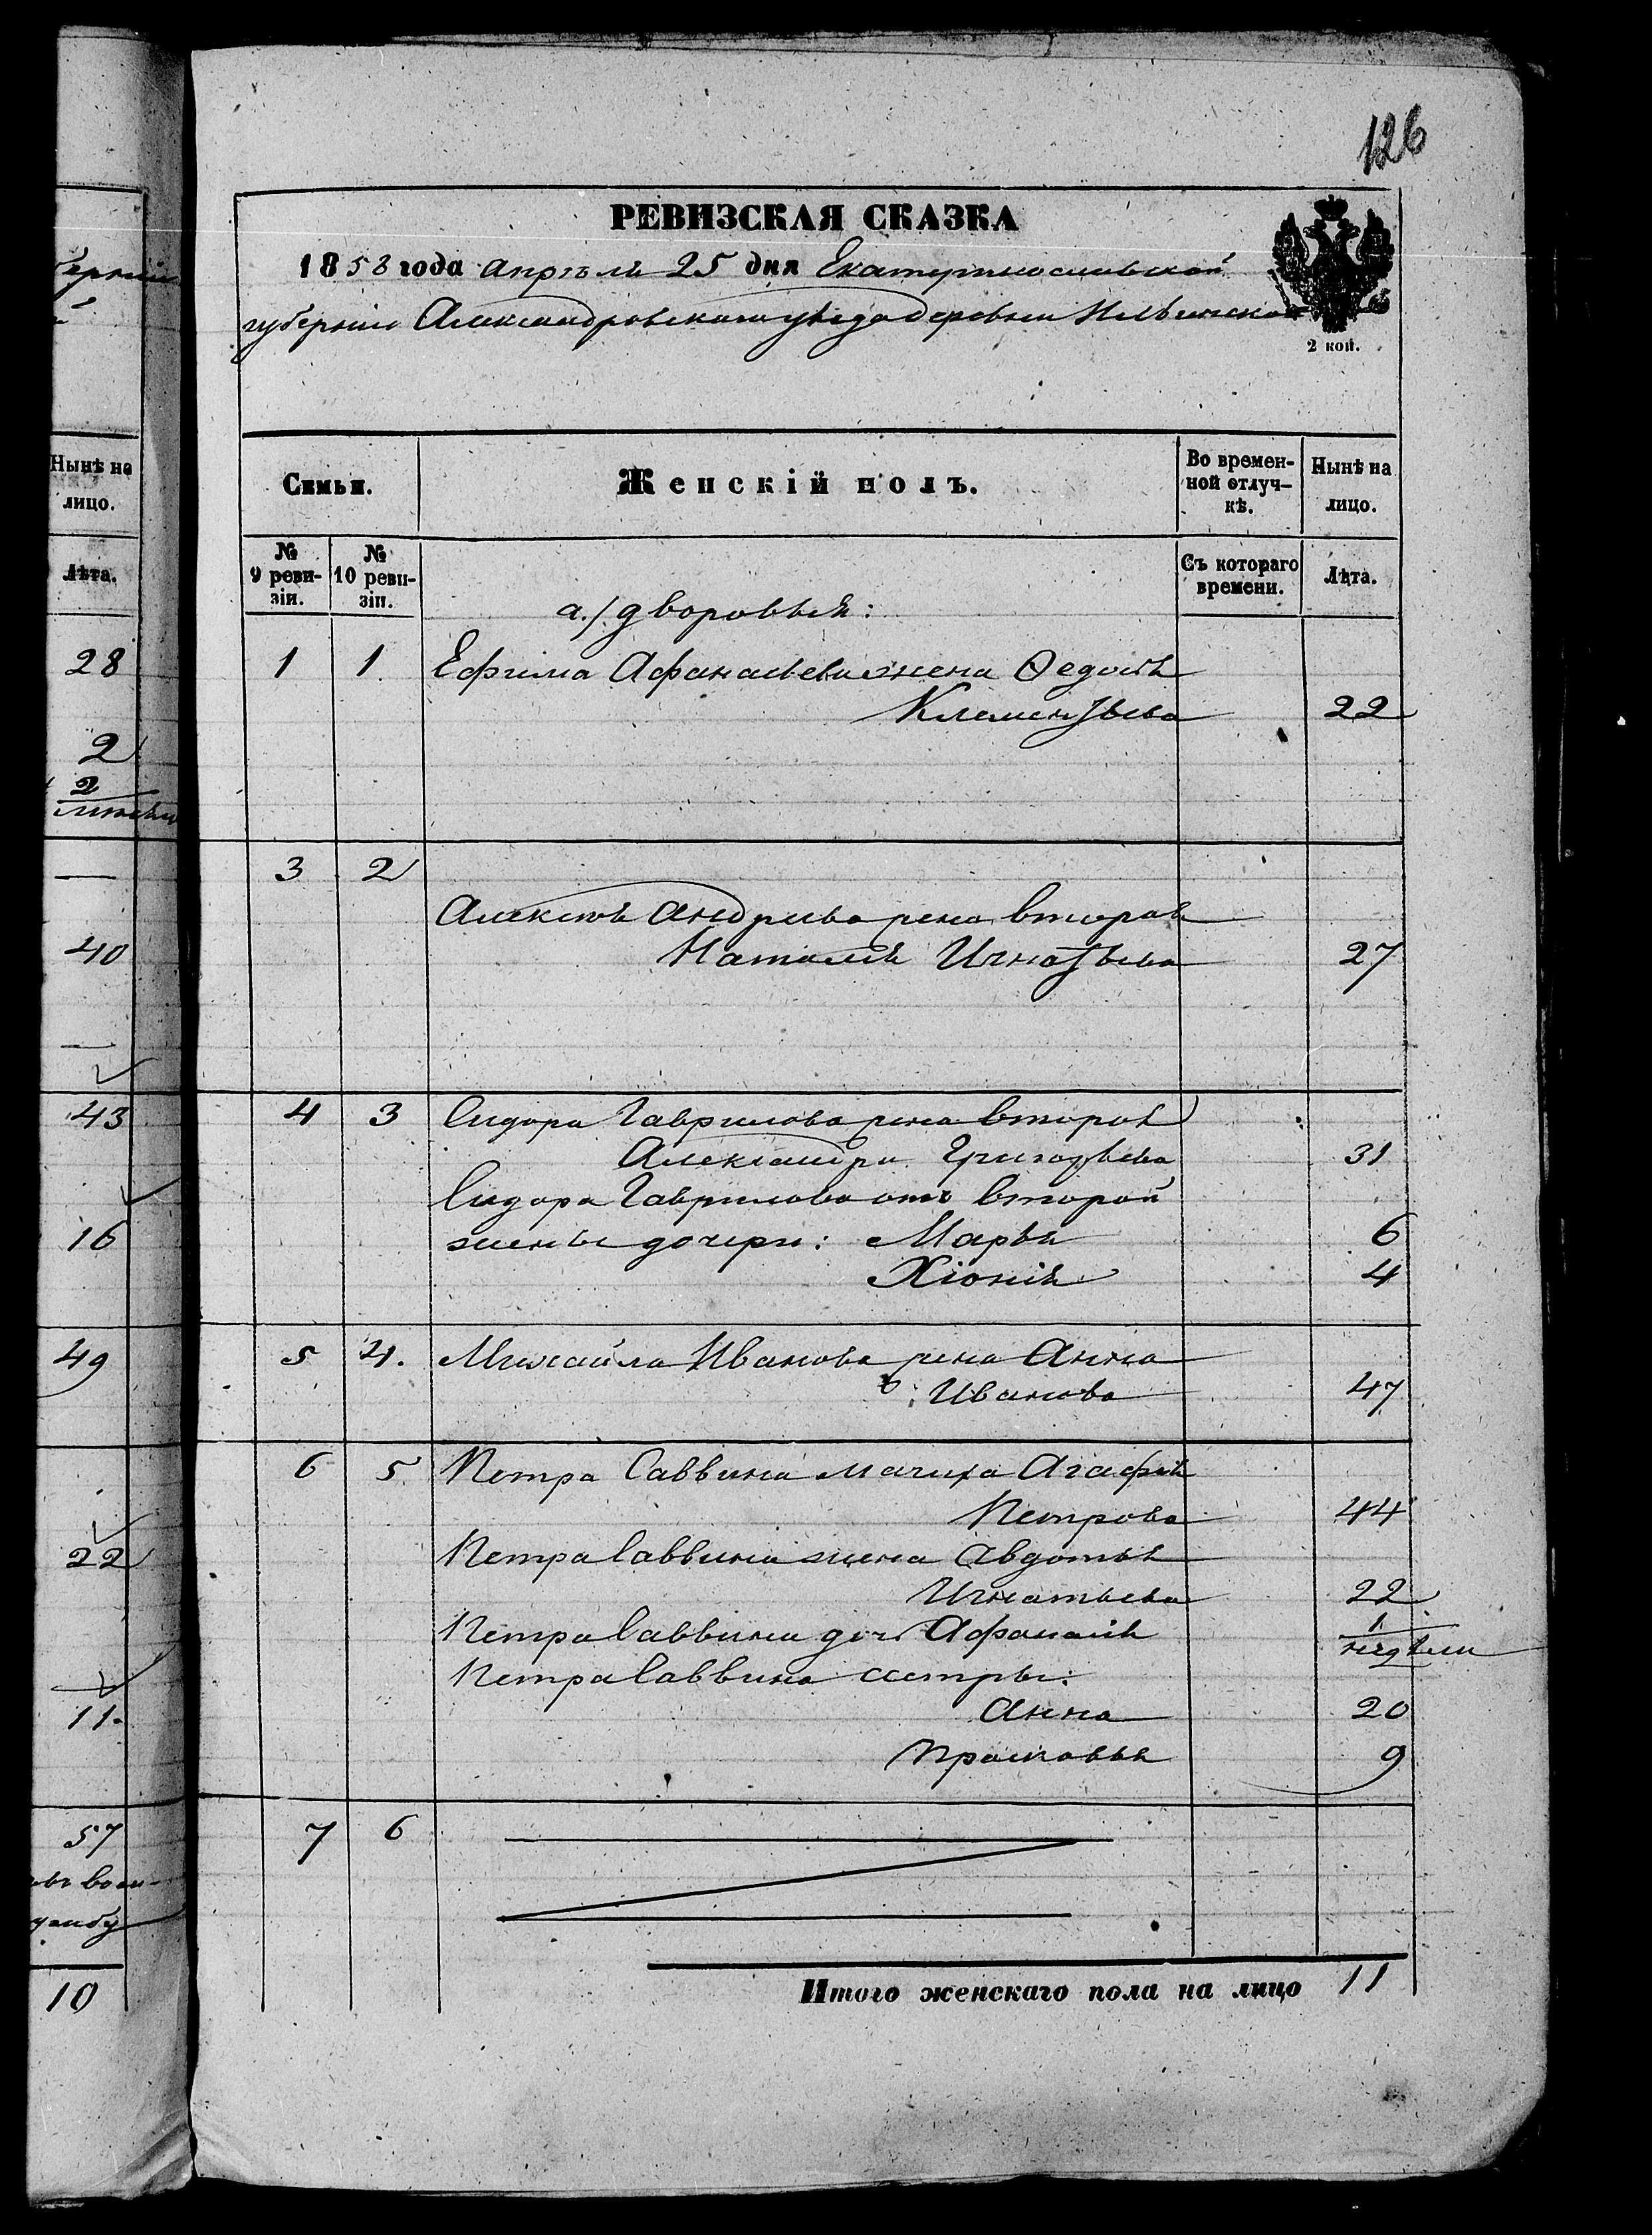 126
РЕВИЗСКАЯ СКАЗКА
1858 года Апрѣля 25 дня Екатеринославской
губерніи Александровскаго уѣзда деревни Ильинской
2 коп.
Нынѣ на лицо.
Лѣта.
28
2
2
40
43
16
49
22
11.
57
10
Семьи.
Женскій полъ.
Во времен-
ной отлуч-
кѣ.
Нынѣ на
лицо.
№
9 реви-
зіи.
№
10 реви-
зіи.
Съ котораго
времени.
Лѣта.
а./ дворовыя:
1 1. Ефима Афанасьева жена Ѳедосья
Клементьева 22
3 2
Алексѣя Андреева жена вторая
Наталія Игнатьева 27
4 3 Сидора Гаврилова жена вторая
Александра Григорьева 31
Сидора Гаврилова отъ второй
жены дочери: Марья 6
Хіонія 4
5 4. Михайла Иванова жена Анна
Иванова 47
6 5 Петра Саввина мачиха Агафья
Петрова 44
Петра Саввина жена Авдотья
Игнатьева 22
Петра Саввина дочь Афанасія 1
недѣли
Петра Саввина сестры:
Анна 20
Прасковья 9
7 6
Итого женскаго пола на лицо 11